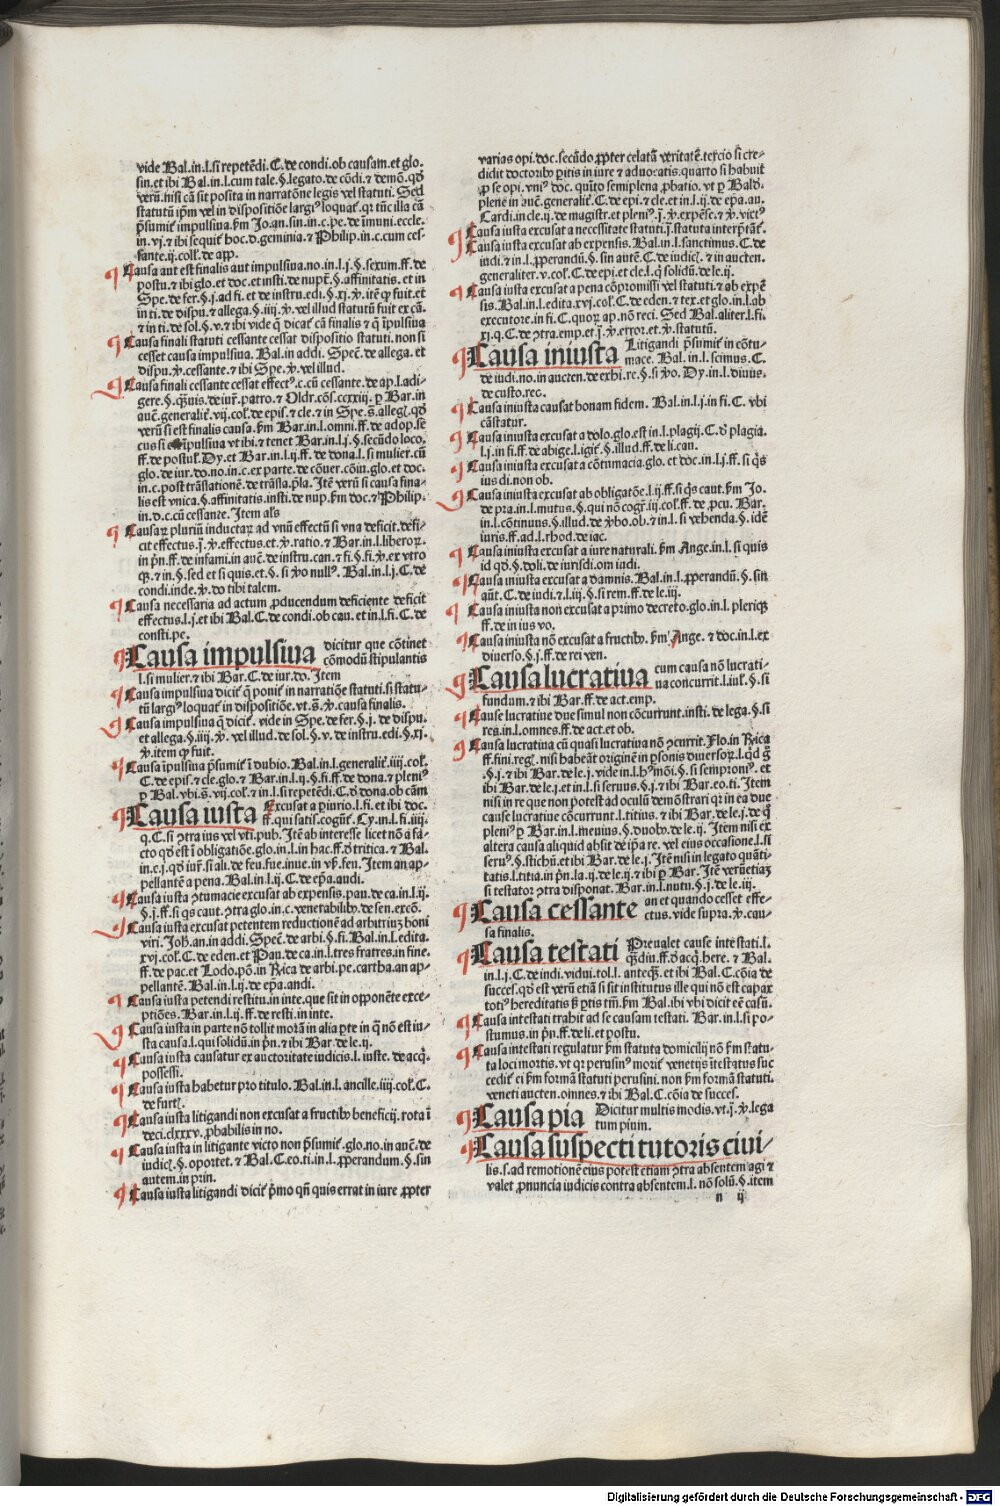 vide Bal.in.l.si repetēdi.C.de condi.ob causam.et glo.
sin.et ibi Bal.in.l.cum tale.§.legato.de cōdi.⁊ demō.qđ
verū.nisi cā sit posita in narratōne legis vel statuti. Sed
statutū ip̄m vel in dispositiōe largiꝰ loquat᷑.qꝛ tūc illa cā
p̄sumit᷑ impulsiua.ẜm Jo.an.sin.in.c.pe.de īmuni.eccle.
in.vj.⁊ ibi sequit᷑ hoc.d.geminia.⁊ Philip.in.c.cum ces-
sante.ij.coll.de app.
Causa aut est finalis aut impulsiua.no.in.l.j.§.sexum.ff.de
postu.⁊ ibi glo.et doc.et insti.de nupt᷑.§.affinitatis.et in
Spe.de fer.§.j.ad fi.et de instru.edi.§.xj.ỹ.itē ꝙ fuit.et
in ti.de dispu.⁊ allega.§.iiij.ỹ.vel illud statutū fuit ex cā.
⁊ in ti.de sol.§.v.⁊ ibi vide ꝙ dicat᷑ cā finalis ⁊ ꝙ īpulsiua
Causa finali statuti cessante cessat dispositio statuti.non si
cesset causa impulsiua. Bal.in addi. Specl̄.de allega.et
dispu.ỹ.cessante.⁊ ibi Spe.ỹ.vel illud.
Causa finali cessante cessat effectꝰ.c.cū cessante.de ap.l.adi-
gere.§.qꝫuis.de iur̄.patro.⁊ Oldr.cōs.ccxxiij.ꝑ Bar.in
auc̄.generalit᷑.vij.col̄.de epis.⁊ cle.⁊ in Spe.s̄.allegl̄.qđ
verū si est finalis causa.ẜm Bar.in.l.omni.ff.de adop.se
cus si impulsiua vt ibi.⁊ tenet Bar.in.l.j.§.secūdo loco.
ff.de postul̄. Dy.et Bar.in.l.ij.ff.de dona.l.si mulier.cū
glo.de iur.do.no.in.c.ex parte.de cōuer.cōiu.glo.et doc.
in.c.post trāslationē.de trāsla.p̄la.Itē verū si causa fina-
lis est vnica.§.affinitatis.insti.de nup.ẜm doc.⁊ Philip.
in.d.c.cū cessante. Item als
Causaꝝ pluriū inductaꝝ ad vnū effectū si vna deficit.defi-
cit effectus.j̄.ỹ.effectus.et.ỹ.ratio.⁊ Bar.in.l.liberoꝝ.
in p̄n.ff.de infami.in auc̄.de instru.can.⁊ fi.§.fi.ỹ.ex vtro
qꝫ.⁊ in.§.sed et si quis.et.§.si ỹo nullꝰ. Bal.in.l.j.C.de
condi.inde.ỹ.vo tibi talem.
Causa necessaria ad actum ꝓducendum deficiente deficit
effectus.l.j.et ibi Bal.C.de condi.ob cau.et in.l.fi.C.de
consti.pe.
Causa impulsiua dicitur que cōtinet
cōmodū stipulantis
l.si mulier.⁊ ibi Bar.C.de iur.do.Item
Causa impulsiua dicit᷑ q̄ ponit᷑ in narratiōe statuti.si statu-
tū largiꝰ loquat᷑ in dispositiōe.vt.s̄.ỹ.causa finalis.
Causa impulsiua q̄ dicit᷑. vide in Spe.de fer.§.j.de dispu.
et allega.§.iiij.ỹ.vel illud.de sol.§.v.de instru.edi.§.xj.
ỹ.item ꝙ fuit.
Causa īpulsiua p̄sumit᷑ ī dubio. Bal.in.l.generalit᷑.iiij.col̄.
C.de epis.⁊ cle.glo.⁊ Bar.in.l.ij.§.fi.ff.de dona.⁊ pleniꝰ
ꝑ Bal.vbi.s̄.vij.col̄.⁊ in.l.si repetēdi.C.đ dona.ob cām
Causa iusta Excusat a piurio.l.fi.et ibi doc.
ff.qui satis.cogūt᷑.Cy.in.l.fi.iiij.
q.C.si ꝯtra ius vel vti.pub.Itē ab interesse licet nō a fa-
cto qđ est ī obligatiōe.glo.in.l.in hac.ff.đ tritica.⁊ Bal.
in.c.j.qđ iur̄.si ali.de feu.fue.inue.in vs̄.feu.Item an ap-
pellantē a pena.Bal.in.l.ij.C.de ep̄a.audi.
Causa iusta ꝯtumacie excusat ab expensis.pau.de ca.in.l.ij.
§.j.ff.si qs caut.ꝯtra glo.in.c.venerabilibꝰ.de sen.excō.
Causa iusta excusat petentem reductionē ad arbitriuꝫ boni
viri. Joh̄.an.in addi. Specl̄.de arbi.§.fi.Bal.in.l.edita.
xvj.col̄.C.de eden.et Pau.de ca.in.l.tres fratres.in fine.
ff.de pac.et Lodo.pō.in Rica de arbi.pe.cartha.an ap-
pellantē. Bal.in.l.ij.de ep̄a.andi.
Causa iusta petendi restitu.in inte.que sit in oppōnēte exce-
ptiōes. Bar.in.l.ij.ff.de resti.in inte.
Causa iusta in parte nō tollit morā in alia ꝑte in q̄ nō est iu-
sta causa.l.qui solidū.in p̄n.⁊ ibi Bar.de le.ij.
Causa iusta causatur ex auctoritate iudicis.l. iuste.de acq̄.
possessi.
Causa iusta habetur pro titulo. Bal.in.l. ancille.iiij.col̄.C.
de furt᷑.
Causa iusta litigandi non excusat a fructibꝰ beneficij.rota ī
deci.clxxxv.ꝓbabilis in no.
Causa iusta in litigante victo non p̄sumit᷑.glo.no.in auc̄.de
iudic᷑.§.oportet.⁊ Bal.C.eo.ti.in.l.ꝓperandum.§.sin
autem.in prin.
Causa iusta litigandi dicit᷑ p̄mo qn̄ quis errat in iure ꝓpter
varias opi.doc.secūdo ꝓpter celatā veritatē.tercio si cre-
didit doctoribꝰ ꝑitis in iure ⁊ aduocatis.quarto si habuit
ꝓ se opi.vniꝰ doc. quīto semiplena ꝓbatio.vt ꝑ Bald̄.
plene in auc̄.generalit᷑.C.de epi.⁊ cle.et in.l.ij.de ep̄a.au.
Cardi.in cle.ij.de magistr.et pleniꝰ.j̄.ỹ.expēse.⁊ ỹ.victꝰ
Causa iusta excusat a necessitate statuti.j̄.statuta interp̄tat᷑.
Causa iusta excusat ab expensis. Bal.in.l.sanctimus.C.de
iudi.⁊ in.l.ꝓperandū.§.sin autē.C.de iudic᷑.⁊ in aucten.
generaliter.v.col̄.C.de epi.et cle.l.q̄ solidū.de le.ij.
Causa iusta excusat a pena cōpromissi vel statuti.⁊ ab expē
sis. Bal.in.l.edita.xvj.col̄.C.de eden.⁊ tex.et glo.in.l.ab
executore.in fi.C.quoꝝ ap.nō reci. Sed Bal.aliter.l.fi.
xj.q.C.de ꝯtra.emp.et.j̄.ỹ.error.et.ỹ.statutū.
Causa iniusta Litigandi p̄sumit᷑ in cōtu-
mace. Bal.in.l.scimus.C.
de iudi.no.in aucten.de exhi.re.§.si ỹo.Dy.in.l.diuus.
de custo.rec.
Causa iniusta causat bonam fidem. Bal.in.l.j.in fi.C.vbi
cāstatur.
Causa iniusta excusat a dolo.glo.est in.l.plagij.C.đ plagia.
l.j.in fi.ff.de abige.l.igit᷑.§.illud.ff.de li.can.
Causa iniusta excusat a cōtumacia.glo.et doc.in.l.j.ff.si q̄s
ius di.non ob.
Causa iniusta excusat ab obligatōe.l.ij.ff.si q̄s caut.ẜm Jo.
de pra.in.l.mutus.§.qui nō cogit᷑.iij.col̄.ff.de.ꝓcu. Bar.
in.l.cōtinuus.§.illud.de ỹbo.ob.⁊ in.l.si vehenda.§.idē
iuris.ff.ad.l.rhod.de iac.
Causa iniusta excusat a iure naturali. ẜm Ange.in.l.si quis
id qđ.§.doli.de iurisdi.om iudi.
Causa iniusta excusat a damnis. Bal.in.l.ꝓperandū.§.sin
aūt.C.de iudi.⁊ l.iij.§.si rem.ff.de le.iij.
Causa iniusta non excusat a primo decreto.glo.in.l. pleriqꝫ
ff.de in ius vo.
Causa iniusta nō excusat a fructibꝰ. ẜm Ange. ⁊ doc.in.l.ex
diuerso.§.j.ff.de rei ven.
Causa lucratiua cum causa nō lucrati-
ua concurrit.l.iul̄.§.si
fundum.⁊ ibi Bar.ff.de act.emp.
Cause lucratiue due simul non cōcurrunt.insti.de lega.§.si
res.in.l.omnes.ff.de act.et ob.
Causa lucratiua cū quasi lucratiua nō ꝯcurrit.Flo.in Rica
ff.fini.reg᷑.nisi habeāt originē in ꝑsonis diuersoꝝ.l.qđ g̃
.§.j.⁊ ibi Bar.de le.j.vide in.l.hꝰmōi.§.si semproniꝰ. et
ibi Bar.de le.j.et in.l.si seruus.§.j.⁊ ibi Bar.eo.ti. Item
nisi in re que non potest ad oculū demōstrari qꝛ in ea due
cause lucratiue cōcurrunt.l.titius.⁊ ibi Bar.de le.j.de q̄
pleniꝰ ꝑ Bar.in.l.meuius.§.duobꝰ.de le.ij. Item nisi ex
altera causa aliquid absit de ip̄a re. vel eius occasione.l.si
seruꝰ.§.stichū.et ibi Bar.de le.j.Itē nisi in legato quāti-
tatis.l.titia.in p̄n.la.ij.de le.ij.⁊ ibi ꝑ Bar. Itē verū etiaꝫ
si testator ꝯtra disponat. Bar.in.l.nutu.§.j.de le.iij.
Causa cessante an et quando cesset effe-
ctus.vide supra.ỹ.cau-
sa finalis.
Causa testati Preualet cause intestati.l.
qꝫdiu.ff.đ acq̄.here.⁊ Bal.
in.l.j.C.de indi.vidui.tol.l. anteqꝫ.et ibi Bal.C.cōia de
succes.qđ est verū etiā si sit institutus ille qui nō est capax
totiꝰ hereditatis sꝫ ꝑtis tm̄.ẜm Bal.ibi vbi dicit eē casū.
Causa intestati trahit ad se causam testati. Bar.in.l.si po-
stumus.in p̄n.ff.de li.et postu.
Causa intestati regulatur ẜm statuta domicilij nō ẜm statu-
ta loci mortis.vt qꝛ perusinꝰ morit᷑ venetijs ītestatus suc
cedit᷑ ei ẜm formā statuti perusini.non ẜm formā statuti.
veneti aucten.omnes.⁊ ibi Bal.C.cōia de succes.
Causa pia Dicitur multis modis.vt.j̄.ỹ.lega
tum pium.
Causa suspecti tutoris ciui-
lis.s.ad remotionē eius potest etiam ꝯtra absentem agi ⁊
valet ꝓnuncia iudicis contra absentem.l. nō solū.§.item
n ij
Digitalisierung gefördert durch die Deutsche Forschungsgemeinschaft - DFG